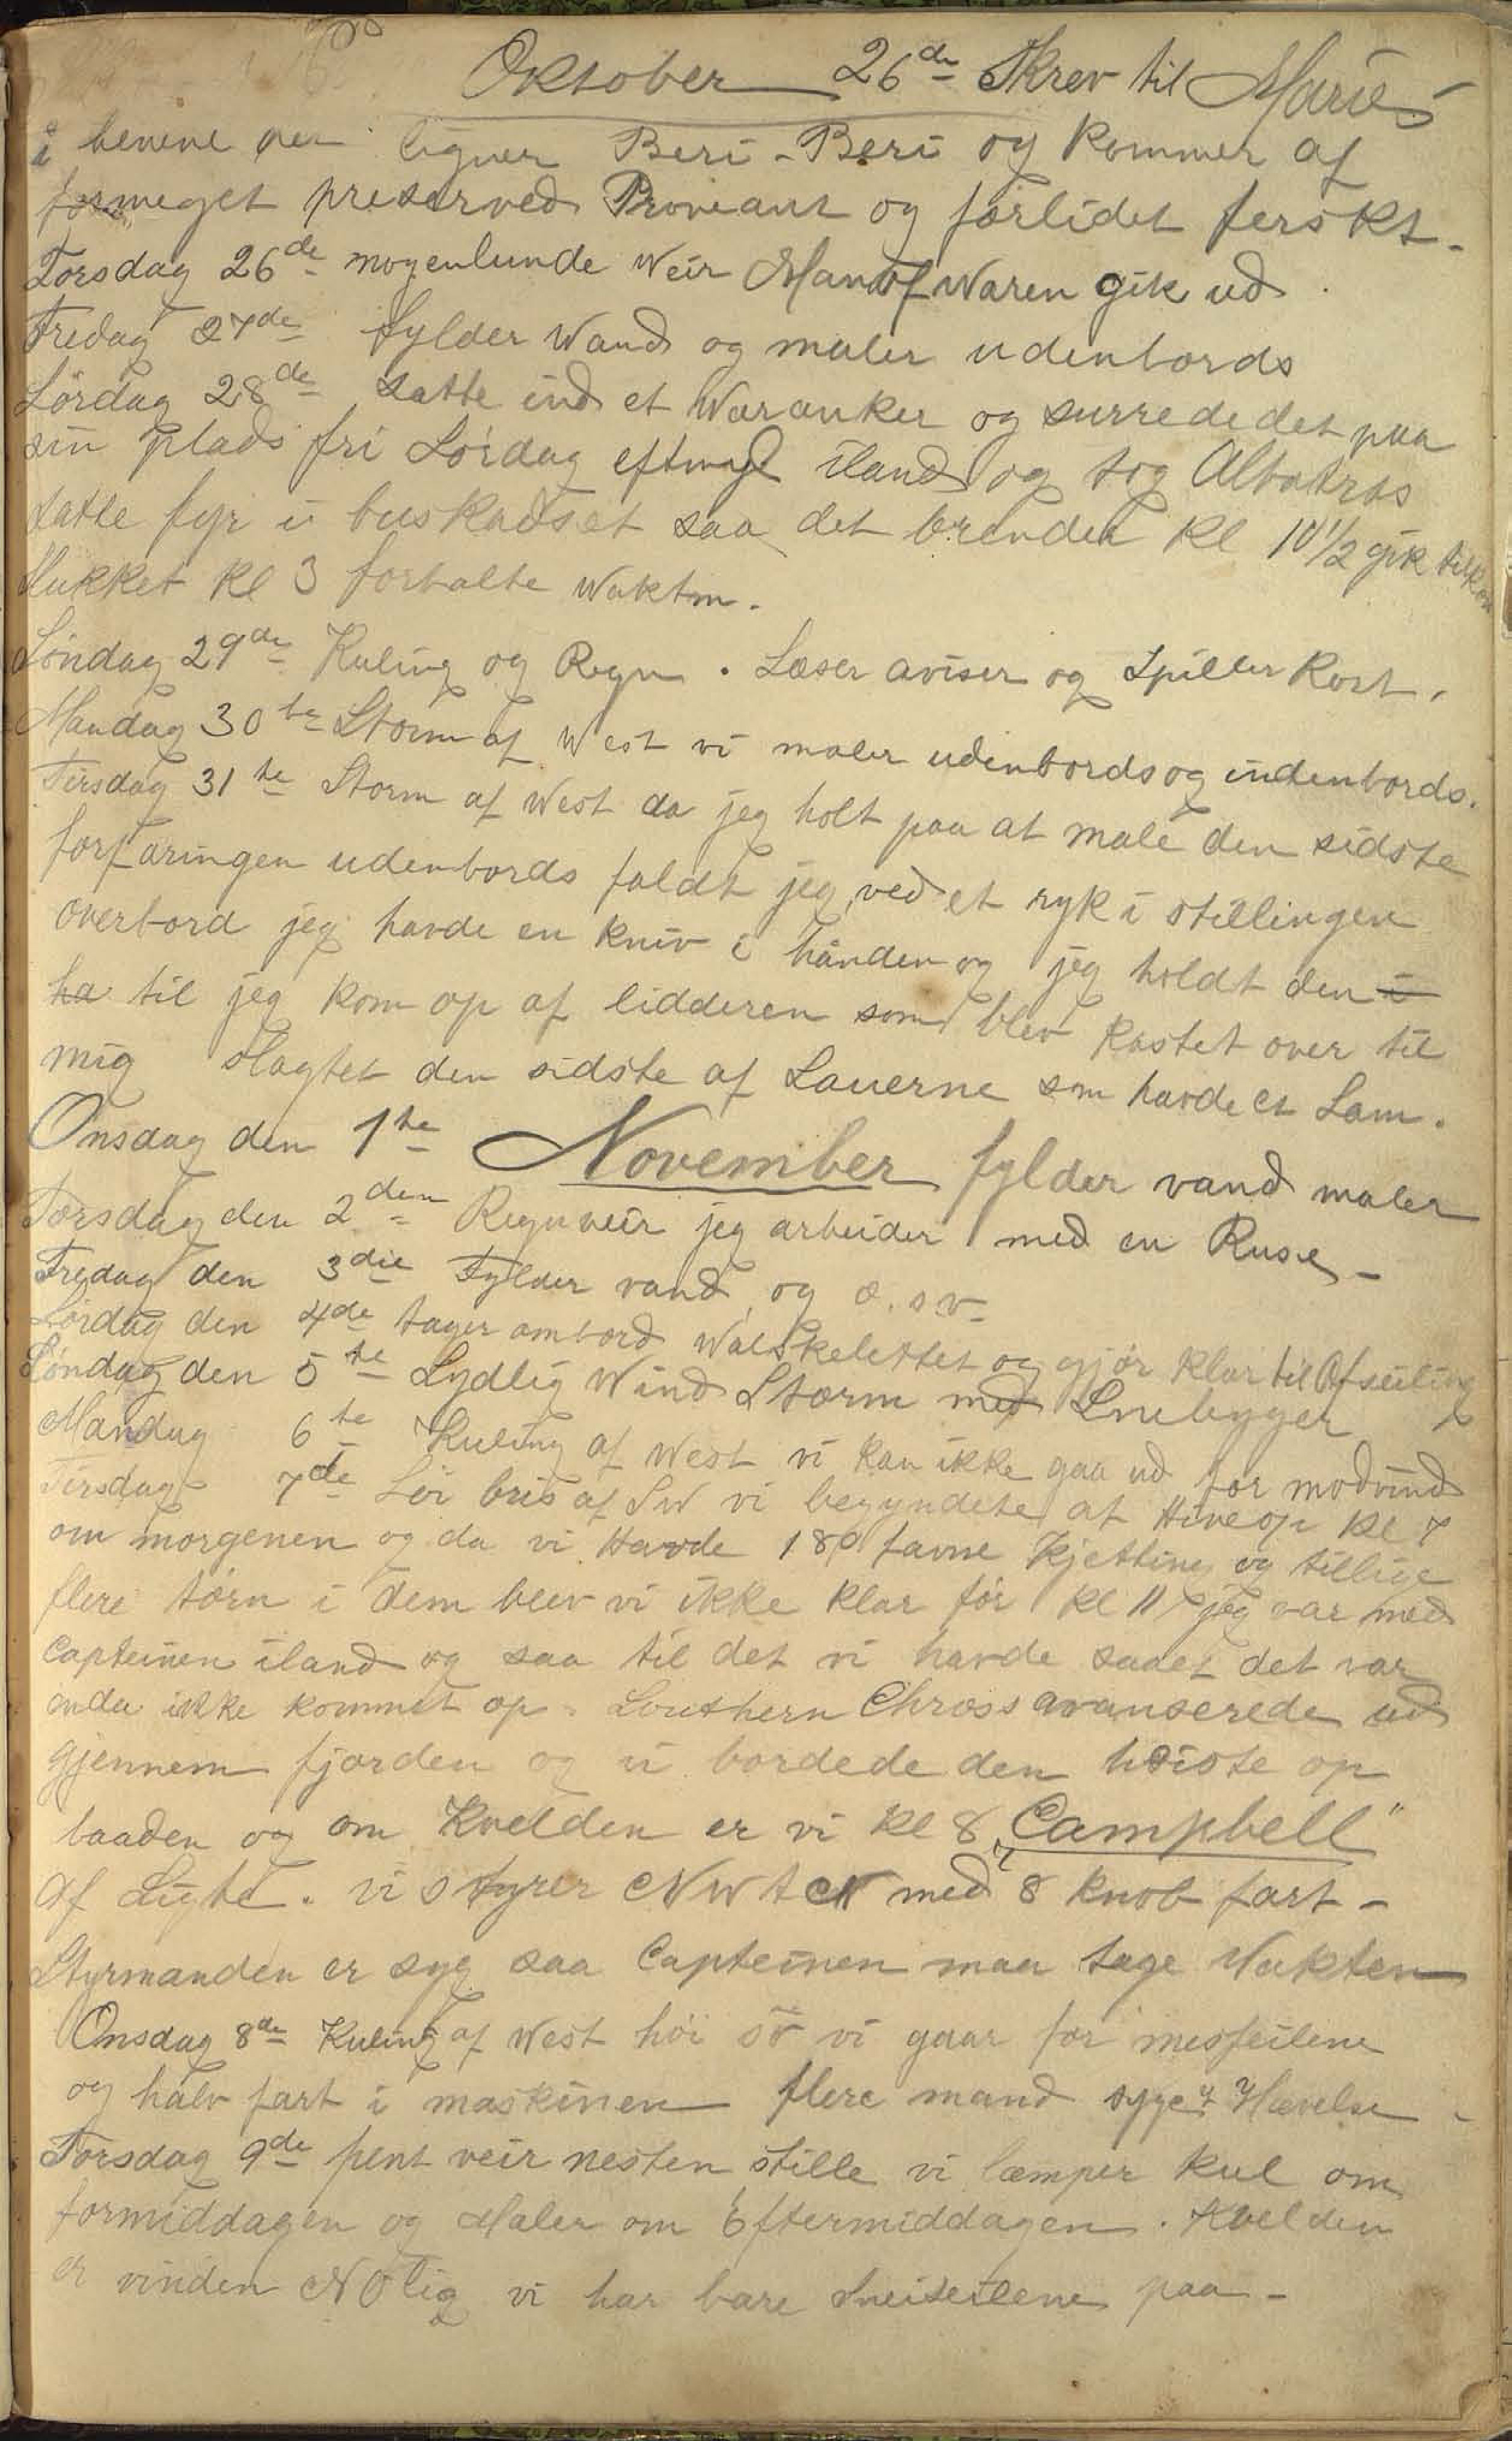 Oktober 26de Skrev til Marie
i benene der ligner Beri-Beri og kommer af
formeget preserved Proviant og forlidet ferskt-
Torsdag 26de mogenlunde Weir Man of Waren gik ud.
Fredag 27de fylder Wand og maler udenbords
Lørdag 28de satte ind et Waranker og surrede det paa
sin plads fri Lørdag eftmd iland og tog Albatros
satte fyr i buskadset saa det brender Kl 10½ gik
Kl 3 fortalte Wakten.
Søndag 29de Kuling og Regn. Læser aviser og spiller Kort.
Mandag 30te Storm af West vi maler udenbords og indenbords.
Tirsdag 31te Storm af West da jeg holt paa at male den sidste
forfaringen udenbords faldt jeg ved et ryk i stillingen
overbord jeg havde en kniv i hånden og jeg holdt den i
ha til jeg kom op af lidderen som blev kastet over til
mig slagtet den sidste af Sauerne som havde et Lam.
Onsdag den 1te November fylder vand maler
Torsdag den 2den Regnveir jeg arbeider med en Ruse-
Fredag den 3die Fylder vand, og o.s.v-
Lørdag den 4de tager ombord Walskelettet og gjør klar til Afseiling
Søndag den 5te Sydlig Wind Storm med Snebyger
Mandag 6te Kuling af West vi kan ikke gaa ud for modvind
Tirsdag 7de Lei bris af SW vi begyndete at Hive op Kl 7
om morgenen og da vi Havde 180 favne Kjetting og tillige
flere tørn i dem blev vi ikke klar før Kl 11 jeg var med
Capteinen iland og saa til det vi havde saaet det var
enda ikke kommet op. Southern Chross avanserede ud
gjennem fjorden og vi bordede den heiste op
baaden og om Kvelden er vi Kl 8 „Campbell"
af Sigte. vi styrer NW t N med 8 knob fart-
Styrmanden er syg saa Capteinen maa tage Vakten
Onsdag 8de Kuling af West høi sø vi gaar for messeilene
og halv fart i maskinen flere mand syge? Hævelse-
Torsdag 9de pent veir nesten stille vi læmper kul om
formiddagen og Maler om Eftermiddagen. Kvelden
er vinden NOlig vi har bare Sneiseilene paa-